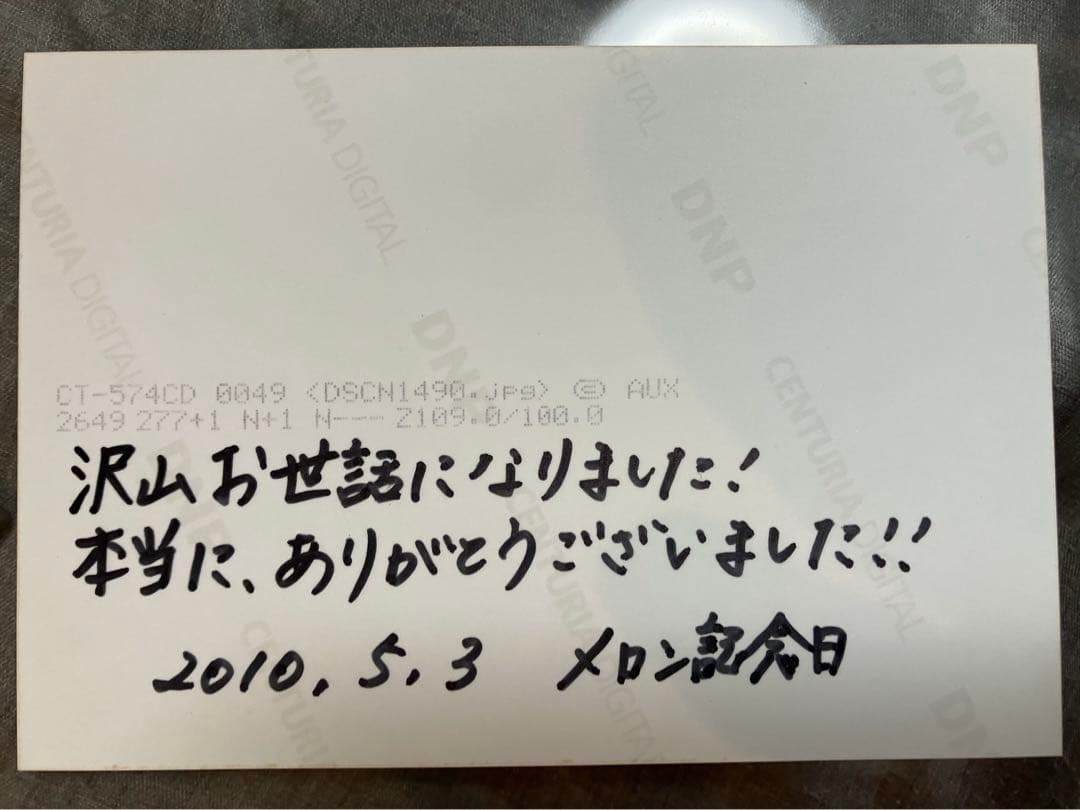 CENTURIA DIGITAL
CENTURIA DIGITAL
DIGITAL
DNP
DNP
DNP
CENTURIA DIGITAL
CT-574CD 0049 <DSCN1490.jpg> Ⓔ AUX
2649 277+1 N+1 N--- Z109.0/100.0
沢山お世話になりました!
本当に、ありがとうございました!!
2010.5.3 メロン記念日
DNP
CENTURIA DIGITAL
CENTURIA DIGITAL
DNP